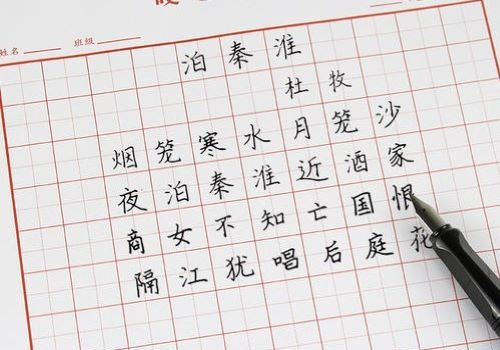 姓名
班级
泊秦淮
杜牧
烟笼寒水月笼沙
夜泊秦淮近酒家
商女不知亡国恨
隔江犹唱后庭花